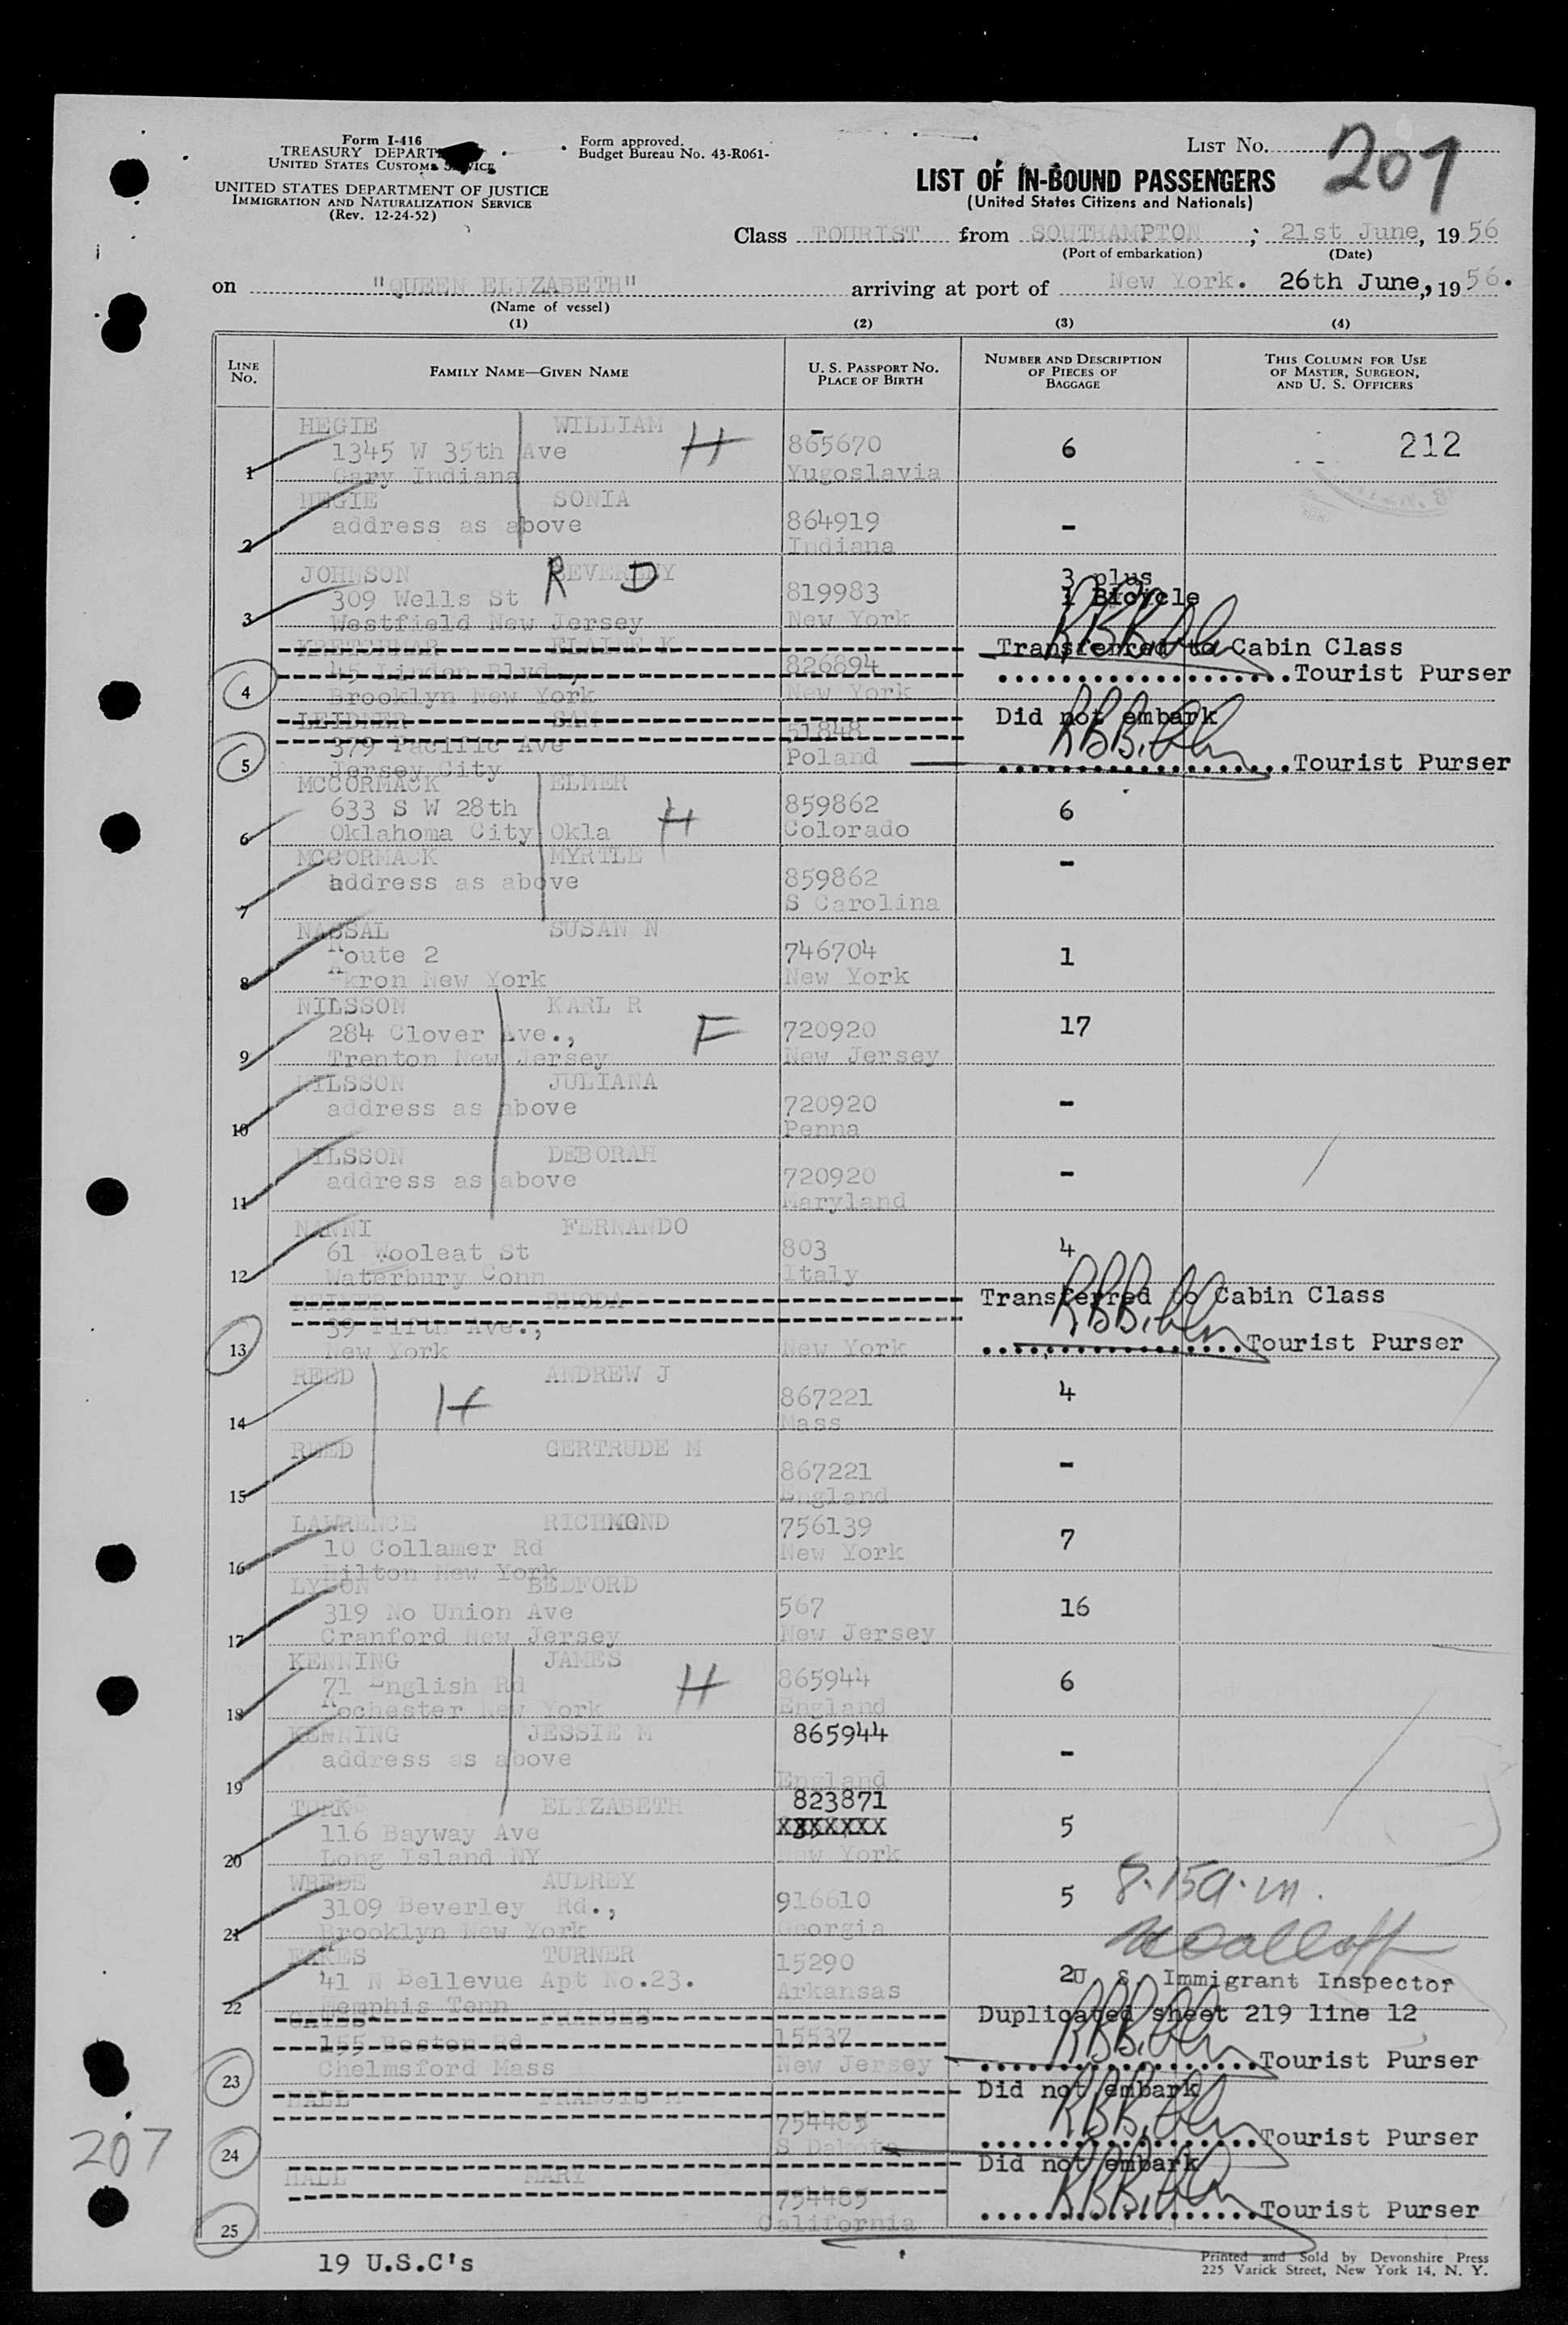 Form I-416
TREASURY DEPART
UNITED STATES CUSTOMS SERVICE
UNITED STATES DEPARTMENT OF JUSTICE
IMMIGRATION AND NATURALIZATION SERVICE
(Rev. 12-24-52)
Form approved.
Budget Bureau No. 43-R061-
LIST No. 207
LIST OF IN-BOUND PASSENGERS
(United States Citizens and Nationals)
Class TOURIST from SOUTHAMPTON ; 21st June, 19 56
(Port of embarkation) (Date)
on "QUEEN ELIZABETH" arriving at port of New York. 26th June, 19 56.
(Name of vessel)
(1) (2) (3) (4)
LINE No. FAMILY NAME—GIVEN NAME U. S. PASSPORT No. PLACE OF BIRTH NUMBER AND DESCRIPTION OF PIECES OF BAGGAGE THIS COLUMN FOR USE OF MASTER, SURGEON, AND U. S. OFFICERS
HEGIE WILLIAM -
1345 W 35th Ave H 865670 6 212
1 Gary Indiana Yugoslavia
HEGIE SONIA
address as above 864919 -
2 Indiana
JOHNSON BEVERLEY R D 3 plus
309 Wells St 819983 1 Bicycle
3 Westfield New Jersey New York
KRETCHMAR ELAINE K Transferred to Cabin Class
45 Linden Blvd., 826894 Tourist Purser
4 Brooklyn New York New York
LEIDNER SAM Did not embark
379 Pacific Ave 51848
5 Jersey City Poland Tourist Purser
MCCORMACK ELMER
633 S W 28th H 859862 6
6 Oklahoma City Okla Colorado
MCCORMACK MYRTLE -
address as above 859862
7 S Carolina
NASSAL SUSAN N
Route 2 746704 1
8 Akron New York New York
NILSSON KARL R
284 Clover Ave., F 720920 17
9 Trenton New Jersey New Jersey
NILSSON JULIANA
address as above 720920 -
10 Penna
NILSSON DEBORAH
address as above 720920 -
11 Maryland
NANNI FERNANDO
61 Wooleat St 803 4
12 Waterbury Conn Italy
REINER RHODA Transferred to Cabin Class
39 Fifth Ave.,
13 New York New York Tourist Purser
REED ANDREW J
H 867221 4
14 Mass
REED GERTRUDE M
867221 -
15 England
LAWRENCE RICHMOND 756139
10 Collamer Rd New York 7
16 Hilton New York
LYDON BEDFORD
319 No Union Ave 567 16
17 Cranford New Jersey New Jersey
KENNING JAMES
71 English Rd H 865944 6
18 Rochester New York England
KENNING JESSIE M 865944
address as above -
19 England
TURK ELIZABETH 823871
116 Bayway Ave XXXXXXX 5
20 Long Island NY New York
WREDE AUDREY
3109 Beverley Rd., 916610 5 8.15a.m.
21 Brooklyn New York Georgia
EAKES TURNER 15290
41 N Bellevue Apt No.23. Arkansas 2 U S Immigrant Inspector
22 Memphis Tenn
FRANCES Duplicated sheet 219 line 12
155 Boston Rd 15537
Chelmsford Mass New Jersey Tourist Purser
23
HALL FRANCIS M Did not embark
754485 Tourist Purser
24 S Dakota
HALL MARY Did not embark
754485 Tourist Purser
25 California
207
19 U.S.C's
Printed and Sold by Devonshire Press
225 Varick Street, New York 14, N. Y.